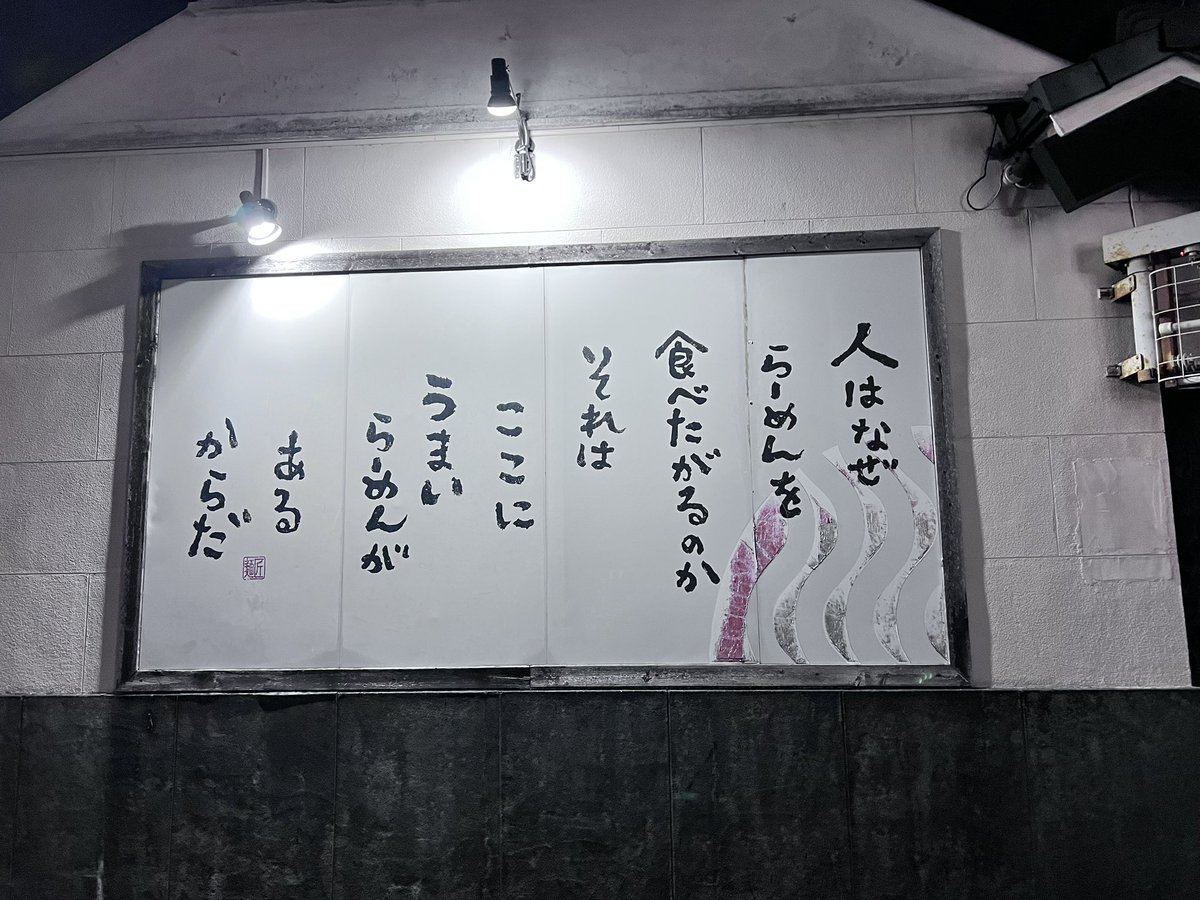 人はなぜ
らーめんを
食べたがるのか
それは
ここに
うまい
らーめんが
ある
からだ